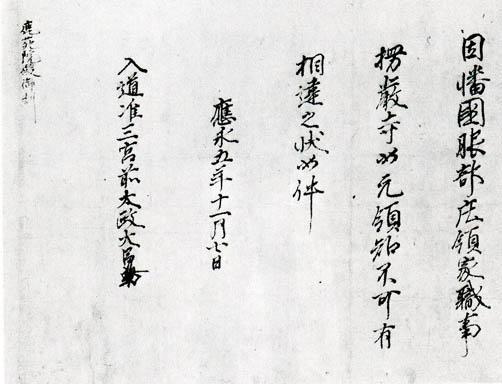 因幡國服部庄領家職事
楞嚴寺如元領知不可有
相違之状如件
應永五年十一月七日
入道准三宮前太政大臣
鹿苑院殿御判